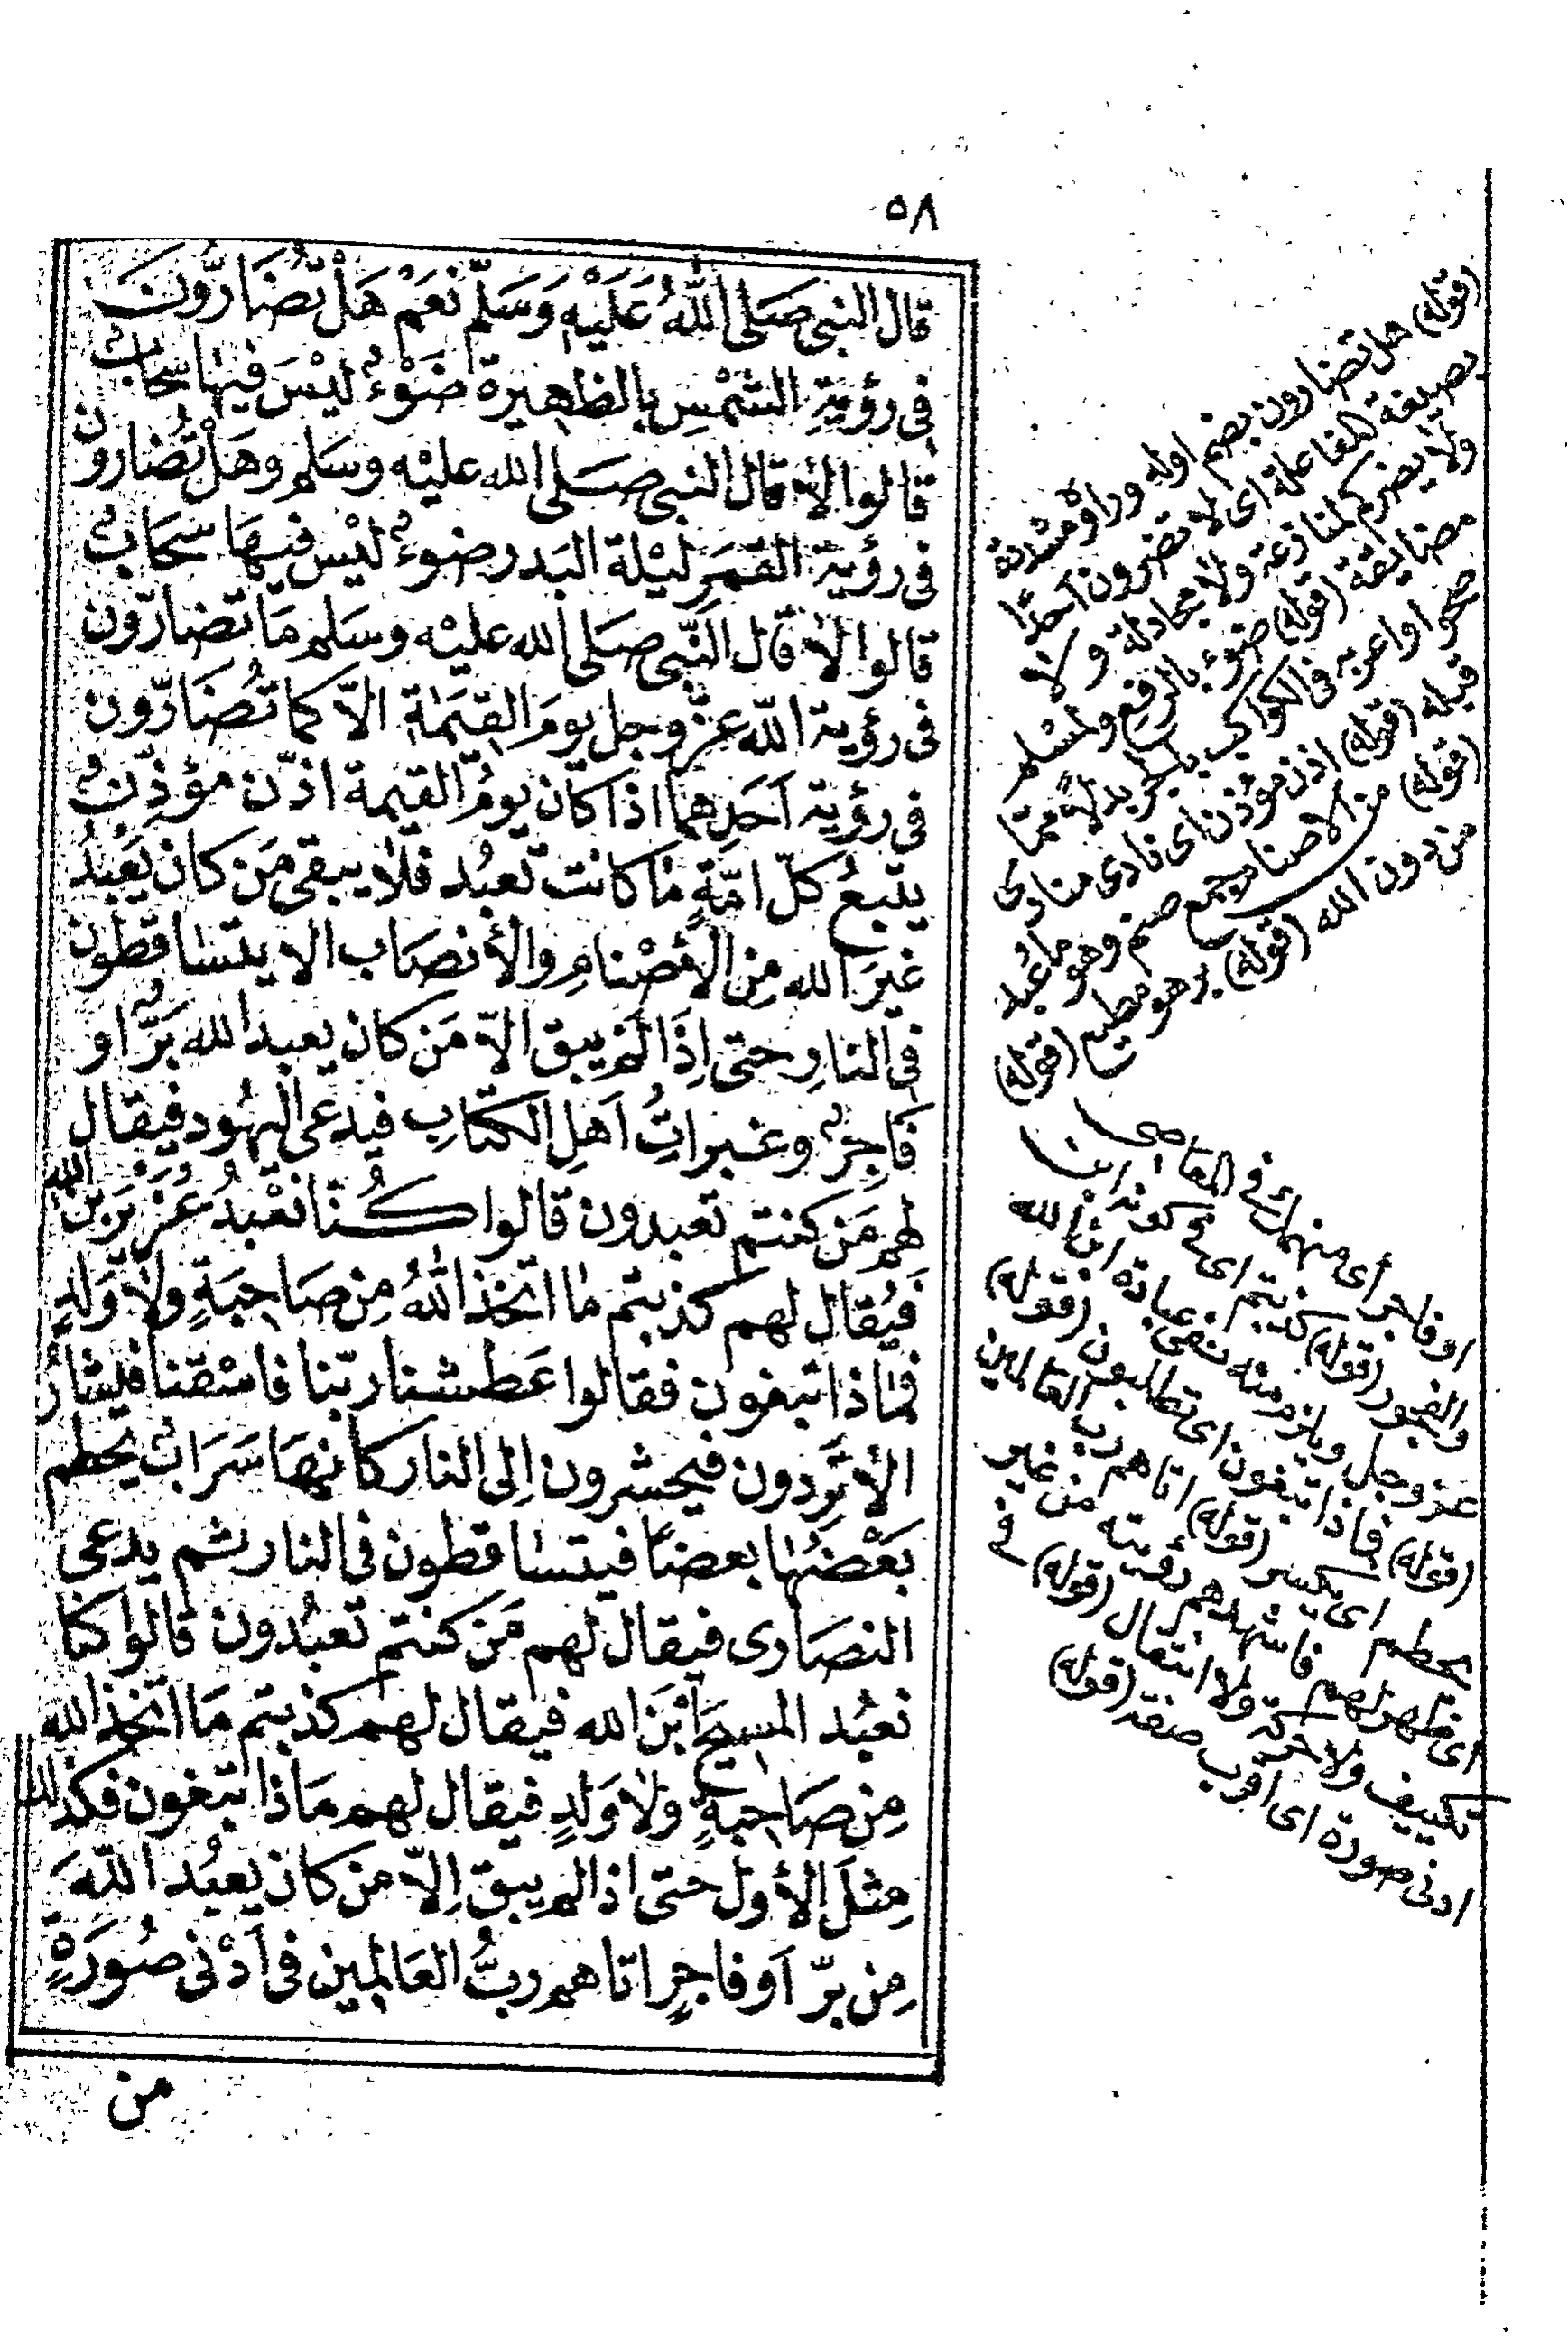 ٥٨
قال النبى صَلى اللهُ عَلَيْهِ وَسَلَّم نَعَمْ هَلْ تُضَارُّونَ
فى رؤيةِ الشمْسِ بالظهيرة ضَوْءٌ ليْسَ فيها سَحابٌ
قالوا لا قال النبى صَلى الله عليْه وسَلم وهَلْ تُضارون
فى رؤية القمَر ليْلة البَدر ضوءٌ ليْس فيهَا سَّحَابٌ
قالوا لا قال النَّبى صَلى الله عليْه وسَلم مَا تضارّون
فى رؤية اللّه عزّ وجل يومَ القيمَة الّا كما تُضَارّون
فى رؤية اَحَدِهما اذا كان يومُ القيمة اذّن مؤذِّنٌ
يتبعُ كلّ امّةٍ مَا كانت تعبُد فلا يبقى مَن كان يَعْبُدُ
غيَرَ الله مِن الأصْنامِ والأنصَاب الا يتسَاقطون
فى النارِ حتى اِذَا لَم يبق الّا مَن كان يعبد الله بَرٌّ او
فَاجِرٌ وغبراتُ اَهلِ الكتابِ فيدعى اليهُود فيقال
لهم مَن كنتم تعبدون قالوا كُنّا نَعْبُدُ عُزَيْرَ بن الله
فَيُقال لهم كذبتم مَا اتخذ اللهُ مِن صَاحِبَةٍ ولا وَلَدٍ
فماذا تبغون فقالوا عَطشنا ربّنا فاسْقنا فيشارُ
الأ تَرِدون فيحشرون اِلى النار كانهَا سَرَابٌ يحطم
بَعْضُهَا بعضًا فيتسَاقطون فى النار ثم يدعى
النصَارى فيقال لهم مَن كنتم تعبُدون قالوا كنا
نعبُد المسيحَ ابْنَ الله فيقال لهم كذبتم مَا اتخذ الله
مِن صَاحبةٍ ولا وَلدٍ فيقال لهم مَاذا تبغون فكذلك
مِثلَ الأول حتى اذا لم يبق اِلّا من كان يعبُد اللّهَ
مِن برّ اَو فاجرٍ اتاهم ربُّ العَالمين فى اَدْنى صُورَةٍ
من
(قوله) هل تضارون بضم اوله وراؤه مشددة
بصيغة المفاعلة اى لا تضرون احدًا
ولا يضركم لمنازعة ولا مجادلة ولا
مضايقة (قوله) ضوء بالرفع ولمسلم
صحوا
قبله (قوله) اذن مؤذن اى نادى منادى
(قوله) من الاصنام جمع صنم وهو ما عبد
من دون الله (قوله) بر هو مطيع (قوله)
او فاجر اى منهمك فى المعاصى
والفجور (قوله) كذبتم اى فى كونه ابن
عز وجل ويلزم منه نفى عبادة ابن الله
(قوله) فماذا تبغون اى تطلبون (قوله)
يحطم اى يكسر (قوله) اتاهم رب العالمين
اى ظهر لهم فاشهدهم رؤيته من غير
تكييف ولا حركة ولا انتقال (قوله) فى
ادنى صورة اى اقرب صفة (قوله)